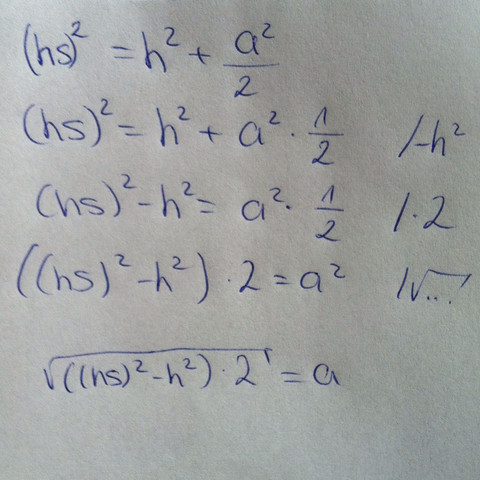 (hs)² = h² + a²/2
(hs)² = h² + a² · 1/2 /-h²
(hs)² - h² = a² · 1/2 / · 2
((hs)² - h²) · 2 = a² /√...
√((hs)² - h²) · 2 = a